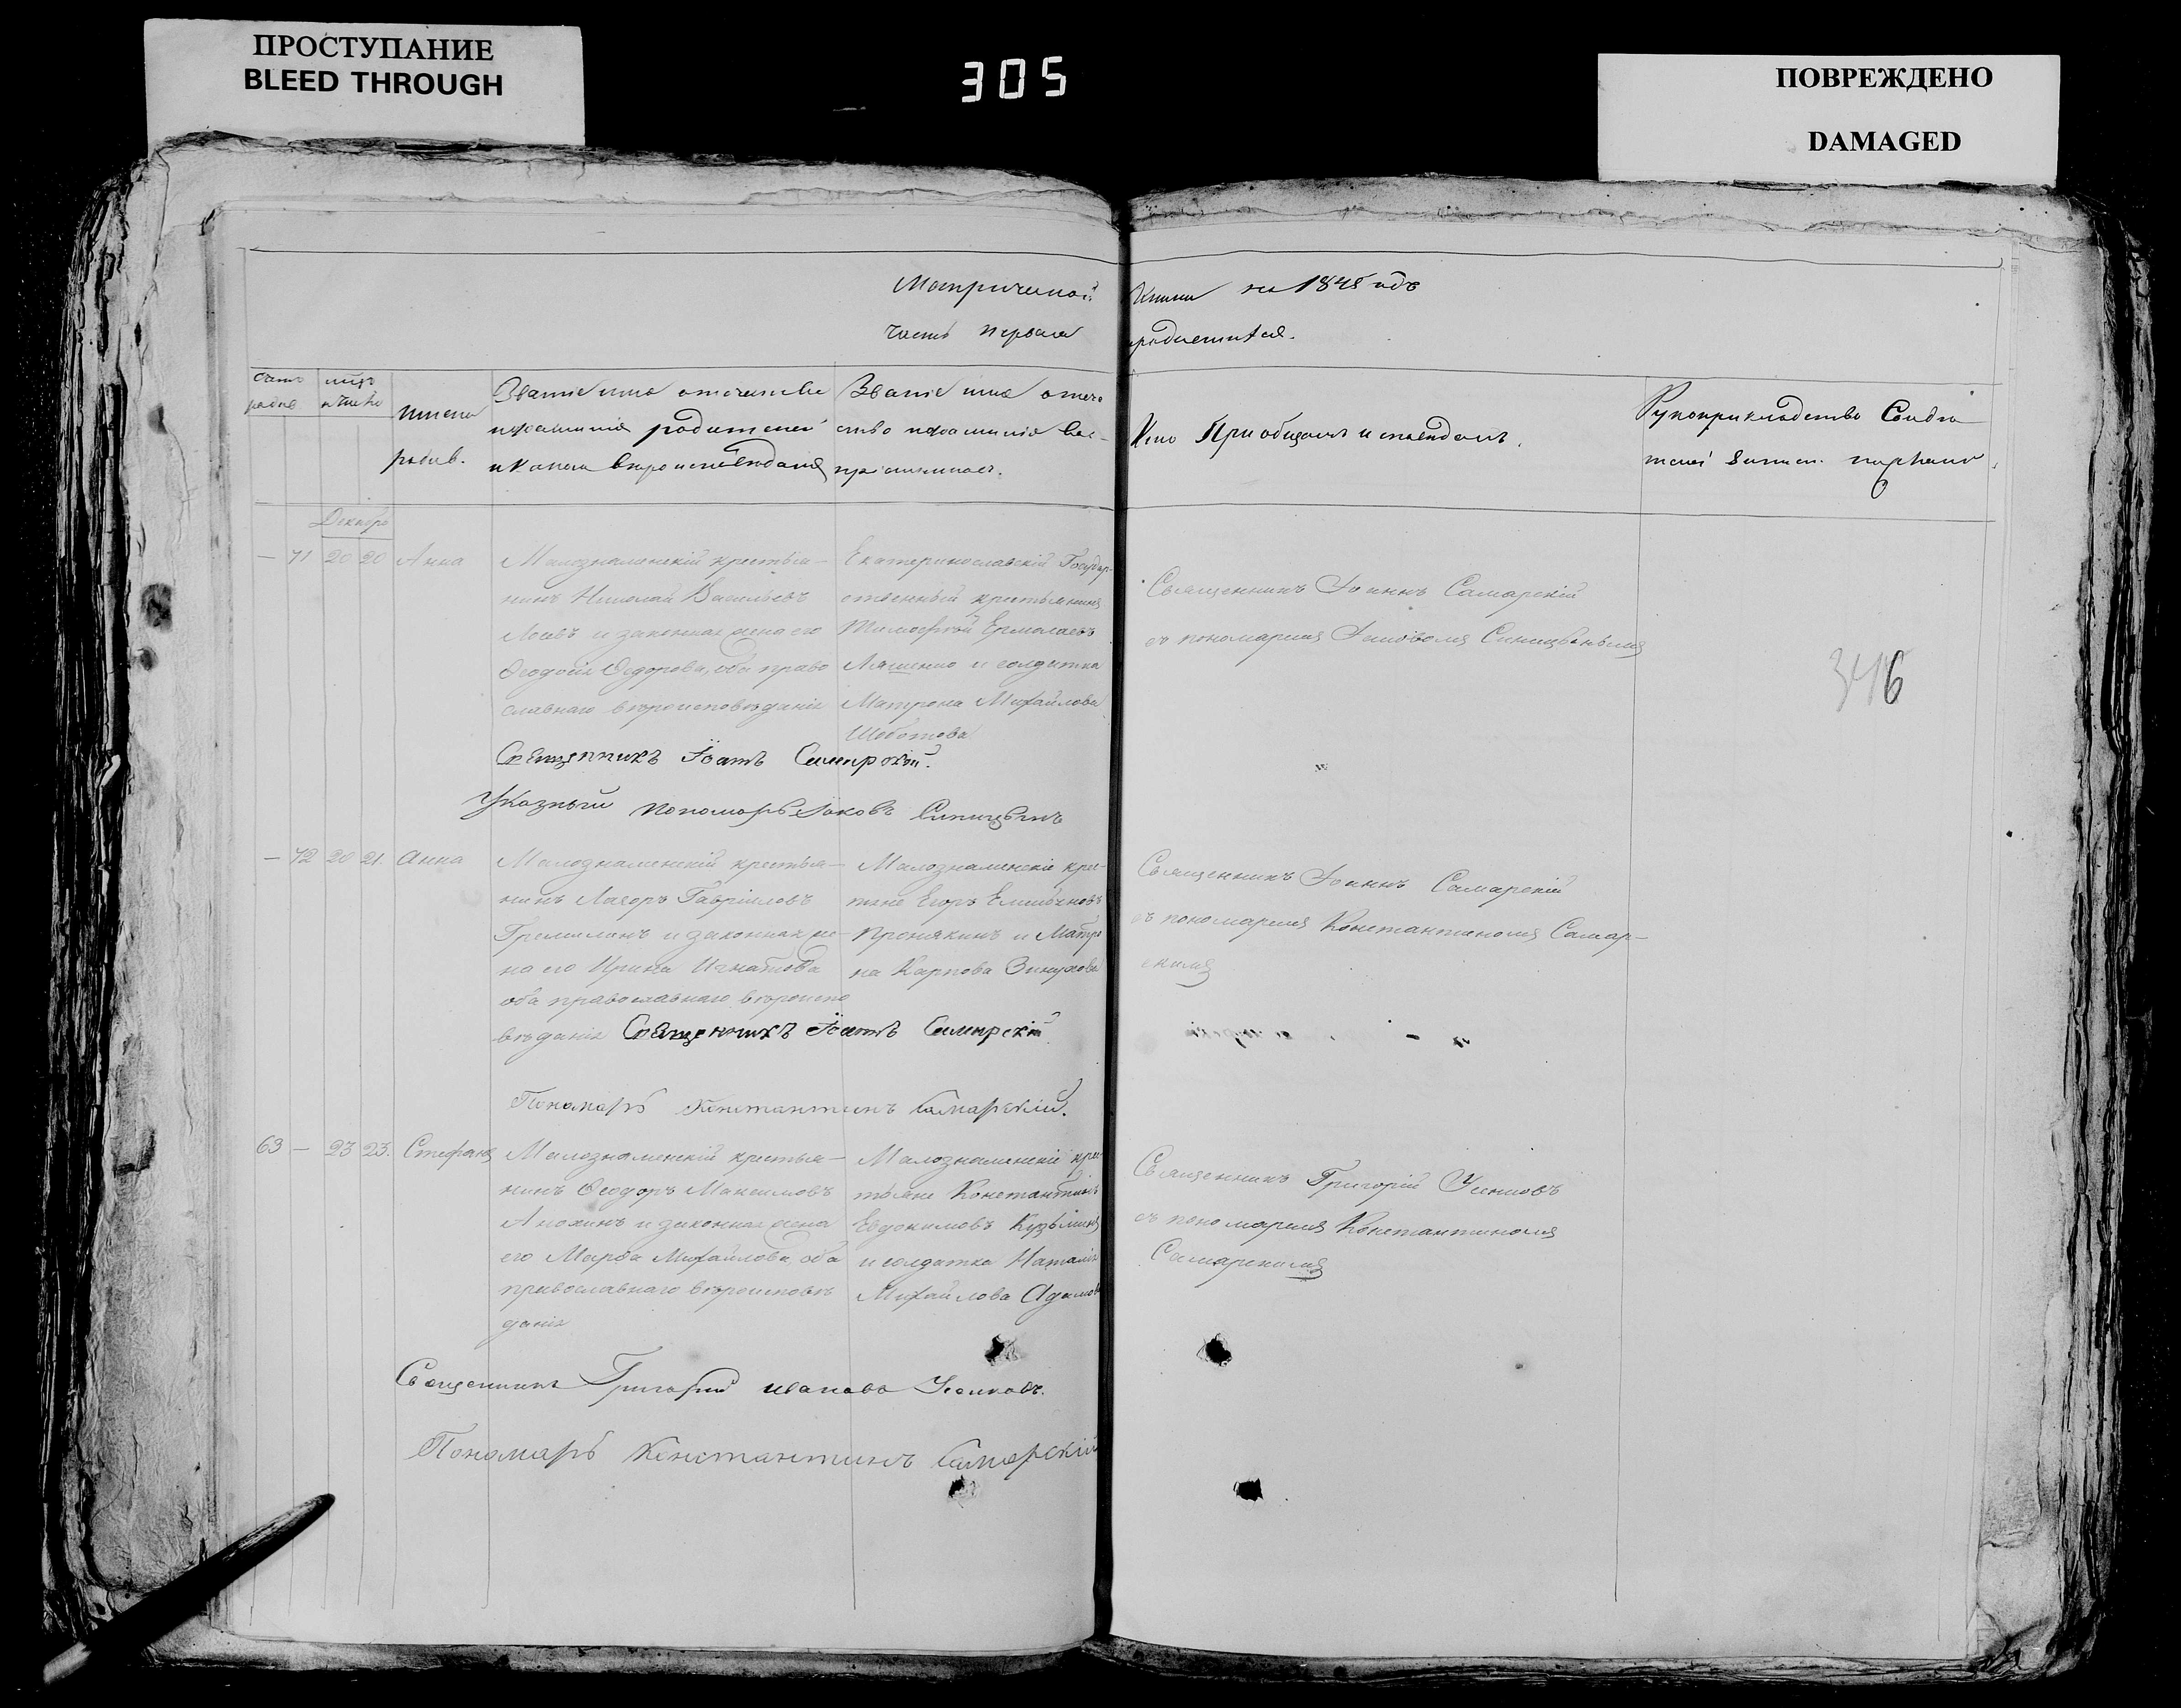 ПРОСТУПАНИЕ
BLEED THROUGH
305
ПОВРЕЖДЕНО
DAMAGED
Метрической Книги на 1845 годъ
часть первая
родившихся.
имена
родив.
Званіе имя отечество
и фамилія родителей
и какого вероисповеданія
Званіе имя отече
ство и фамилія вос-
пріемниковъ.
Кто Пріобщалъ и
Рукоприкладство Свиде
телей
Декабрь
— 71 20 20 Анна
Малознаменскій крестья-
нинъ Николай Васильевъ
и законная жена его
Ѳеодосія Ѳедорова, оба право
славнаго вѣроисповѣданія
Екатеринославскій Государ-
ственный крестьянинъ
Тимофей Ермолаевъ
Ляшенко и солдатка
Матрона Михайлова
Шоботова
Священникъ Іоаннъ Самарскій
съ пономаремъ Іаковомъ Синицынымъ
346
Священникъ Іоаннъ Самарскій.
Указный пономарь Іаковъ Синицынъ
— 72 20 21. Анна
Малознаменскій крестья-
нинъ Лазорь Гавріиловъ
и законная же-
на его Ирина Игнатова
оба православнаго вѣроиспо
вѣданія Священникъ Іоаннъ Самарскій
Малознаменскіе крес-
тьяне Егоръ Емельяновъ
Пронякинъ и Матро
на Карпова
Священникъ Іоаннъ Самарскій
съ пономаремъ Константиномъ Самар-
скимъ
Пономарь Константинъ Самарскій.
63 — 23 23. Стефанъ
Малознаменскій крестья-
нинъ Ѳеодоръ Максимовъ
Анохинъ и законная жена
его Марѳа Михайлова, оба
православнаго вѣроисповѣ
данія
Малознаменскіе крес
тьяне Константинъ
Евдокимовъ Кузьминъ
и солдатка Наталія
Михайлова
Священникъ Григорій Усиковъ
съ пономаремъ Константиномъ
Самарскимъ
Священникъ Григорій Ивановъ Усиковъ.
Пономарь Константинъ Самарскій